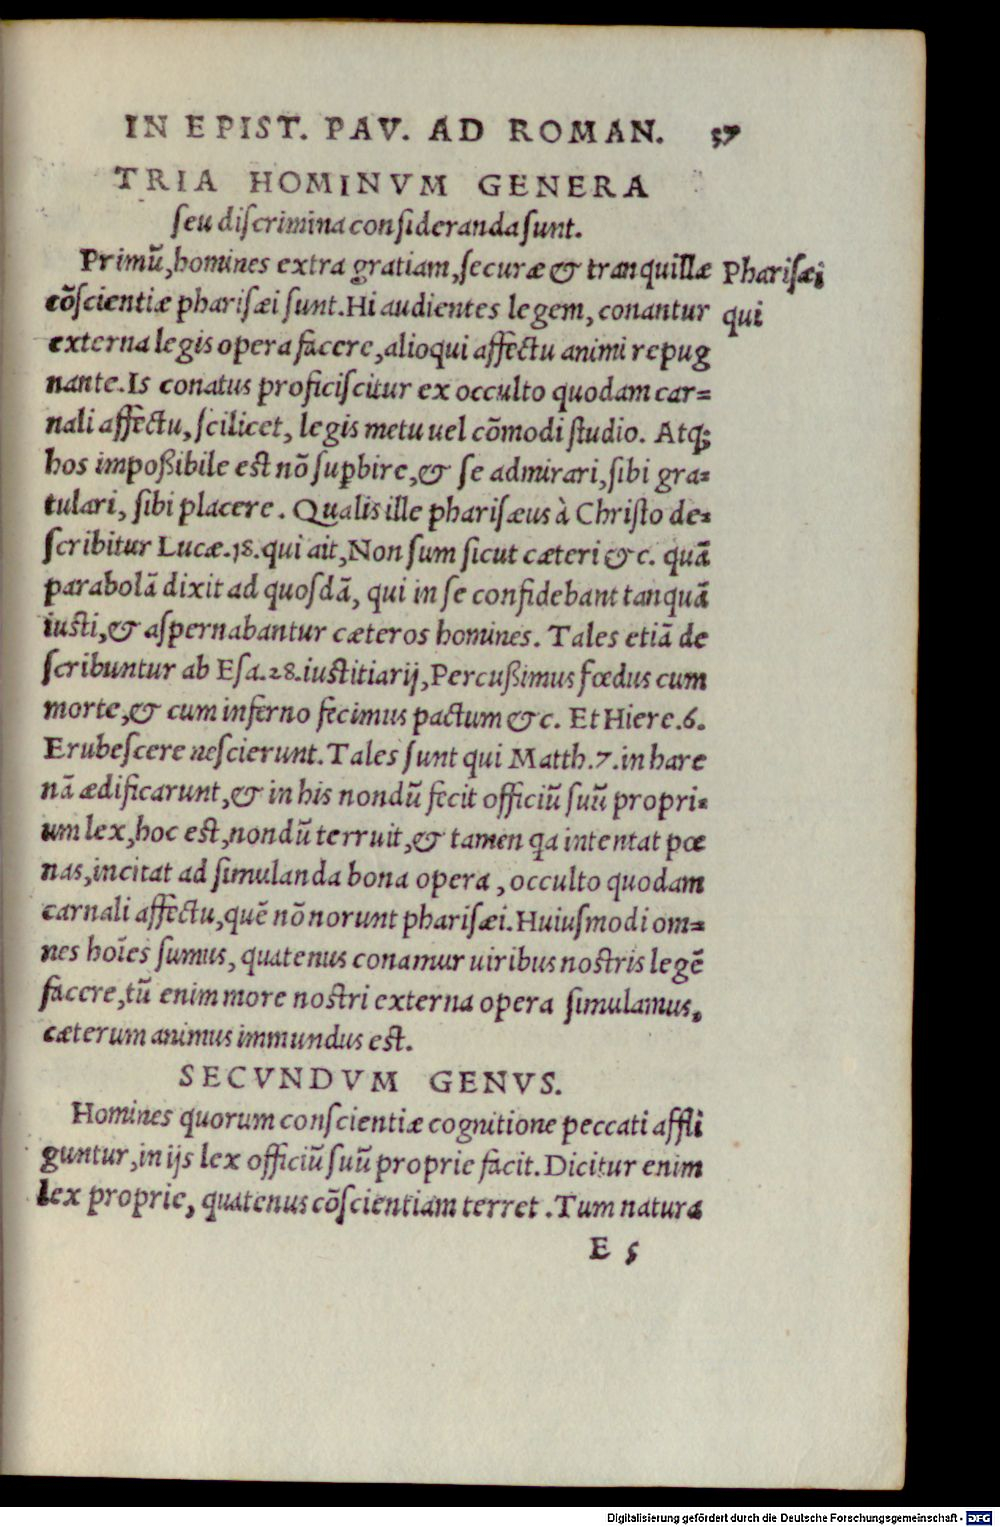 IN EPIST. PAV. AD ROMAN. 57
TRIA HOMINVM GENERA
ſeu diſcrimina conſideranda ſunt.
Primũ, homines extra gratiam, ſecuræ & tranquillæ
Phariſæi
cõſcientiæ phariſæi ſunt. Hi audientes legem, conantur
qui
externa legis opera facere, alioqui affectu animi repug
nante. Is conatus proficiſcitur ex occulto quodam car=
nali affectu, ſcilicet, legis metu uel cõmodi ſtudio. Atq;
hos impoßibile est nõ suꝑbire, & ſe admirari, ſibi gra=
tulari, ſibi placere. Qualis ille phariſæus à Chriſto de=
ſcribitur Lucæ.18. qui ait, Non ſum ſicut cæteri & c. quã
parabolã dixit ad quoſdã, qui in ſe confidebant tanquã
iuſti, & aſpernabantur cæteros homines. Tales etiã de
ſcribuntur ab Eſa.28. iustitiarij, Percußimus fœdus cum
morte, & cum inferno fecimus pactum & c. Et Hiere.6.
Erubeſcere neſcierunt. Tales ſunt qui Matth.7. in hare
nã ædificarunt, & in his nondũ fecit officiũ ſuũ propri=
um lex, hoc est, nondũ terruit, & tamen qa intentat pœ
nas, incitat ad ſimulanda bona opera, occulto quodam
carnali affectu, quẽ nõ norunt phariſæi. Huiuſmodi om=
nes hoı̃es ſumus, quatenus conamur uiribus nostris legẽ
facere, tũ enim more nostri externa opera ſimulamus,
cæterum animus immundus est.
SECVNDVM GENVS.
Homines quorum conſcientiæ cognitione peccati affli
guntur, in ijs lex officiũ ſuũ proprie facit. Dicitur enim
lex proprie, quatenus cõſcientiam terret. Tum natura
E 5
Digitalisierung gefördert durch die Deutsche Forschungsgemeinschaft - DFG